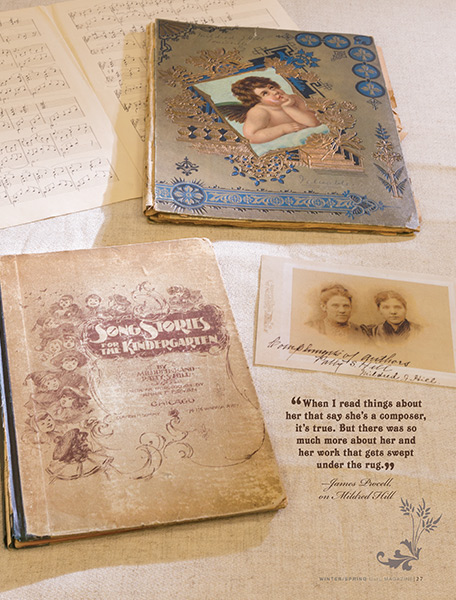 SONG STORIES
FOR THE KINDERGARTEN
BY
MILDRED J. AND
PATTY S. HILL
CHICAGO
Compliments of Authors
Patty S. Hill
Mildred J. Hill
“When I read things about
her that say she’s a composer,
it’s true. But there was so
much more about her and
her work that gets swept
under the rug.”
—James Procell,
on Mildred Hill
WINTER/SPRING MAGAZINE | 27